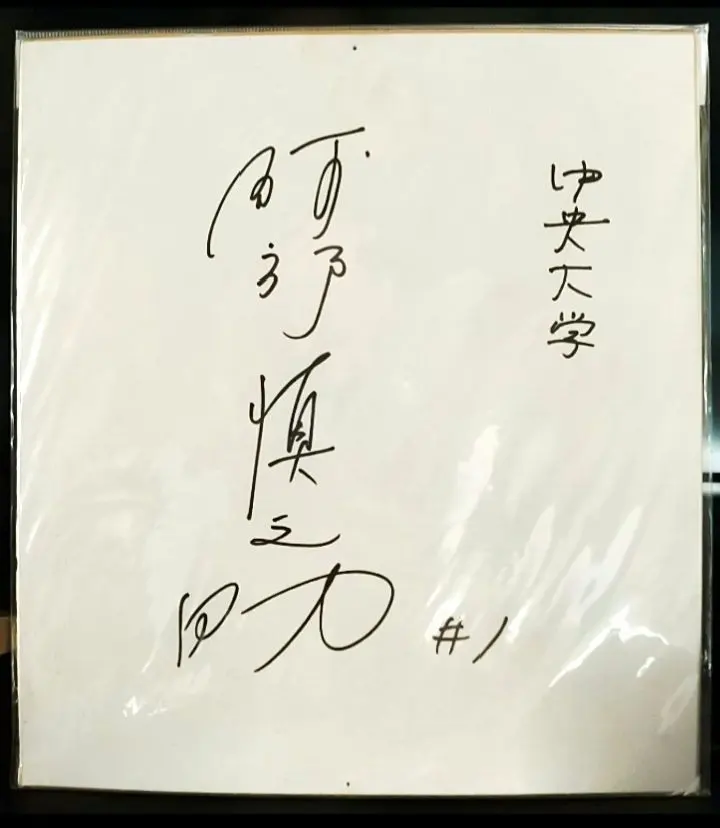 中央大学
阿部慎之助
#1